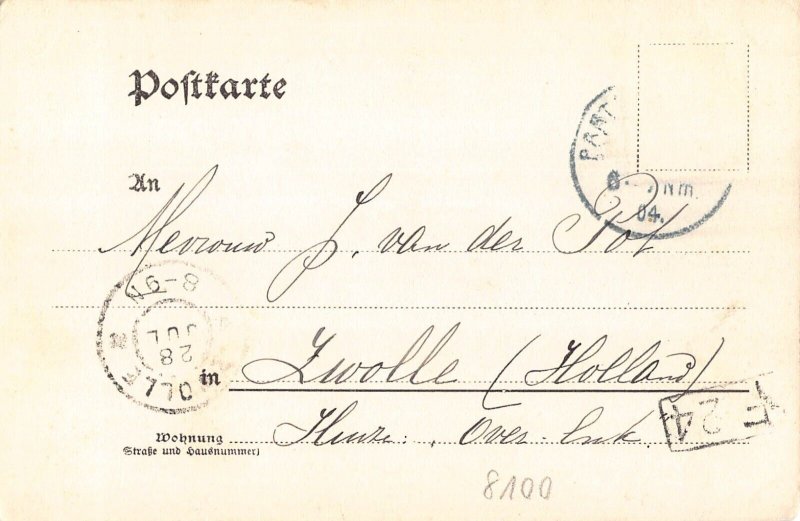 Postkarte
PRAT
8- 7 Nm.
04.
An
Mevrouw J. van der Pot
8-9N
28
JUL
OLLE
in Zwolle (Holland)
Wohnung
(Straße und Hausnummer)
Huize: Over-
F 24
8100